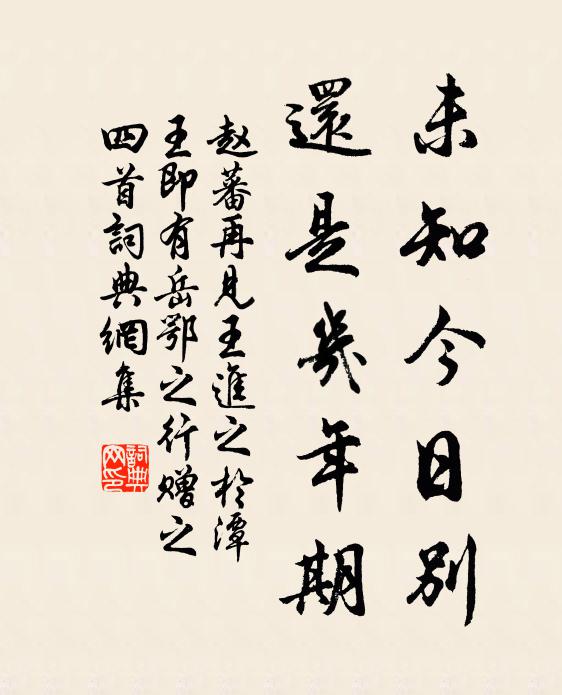 未知今日別
還是幾年期
赵蕃再見王進之於潭
王即有岳鄂之行贈之
四首詞典網集
詞典网印